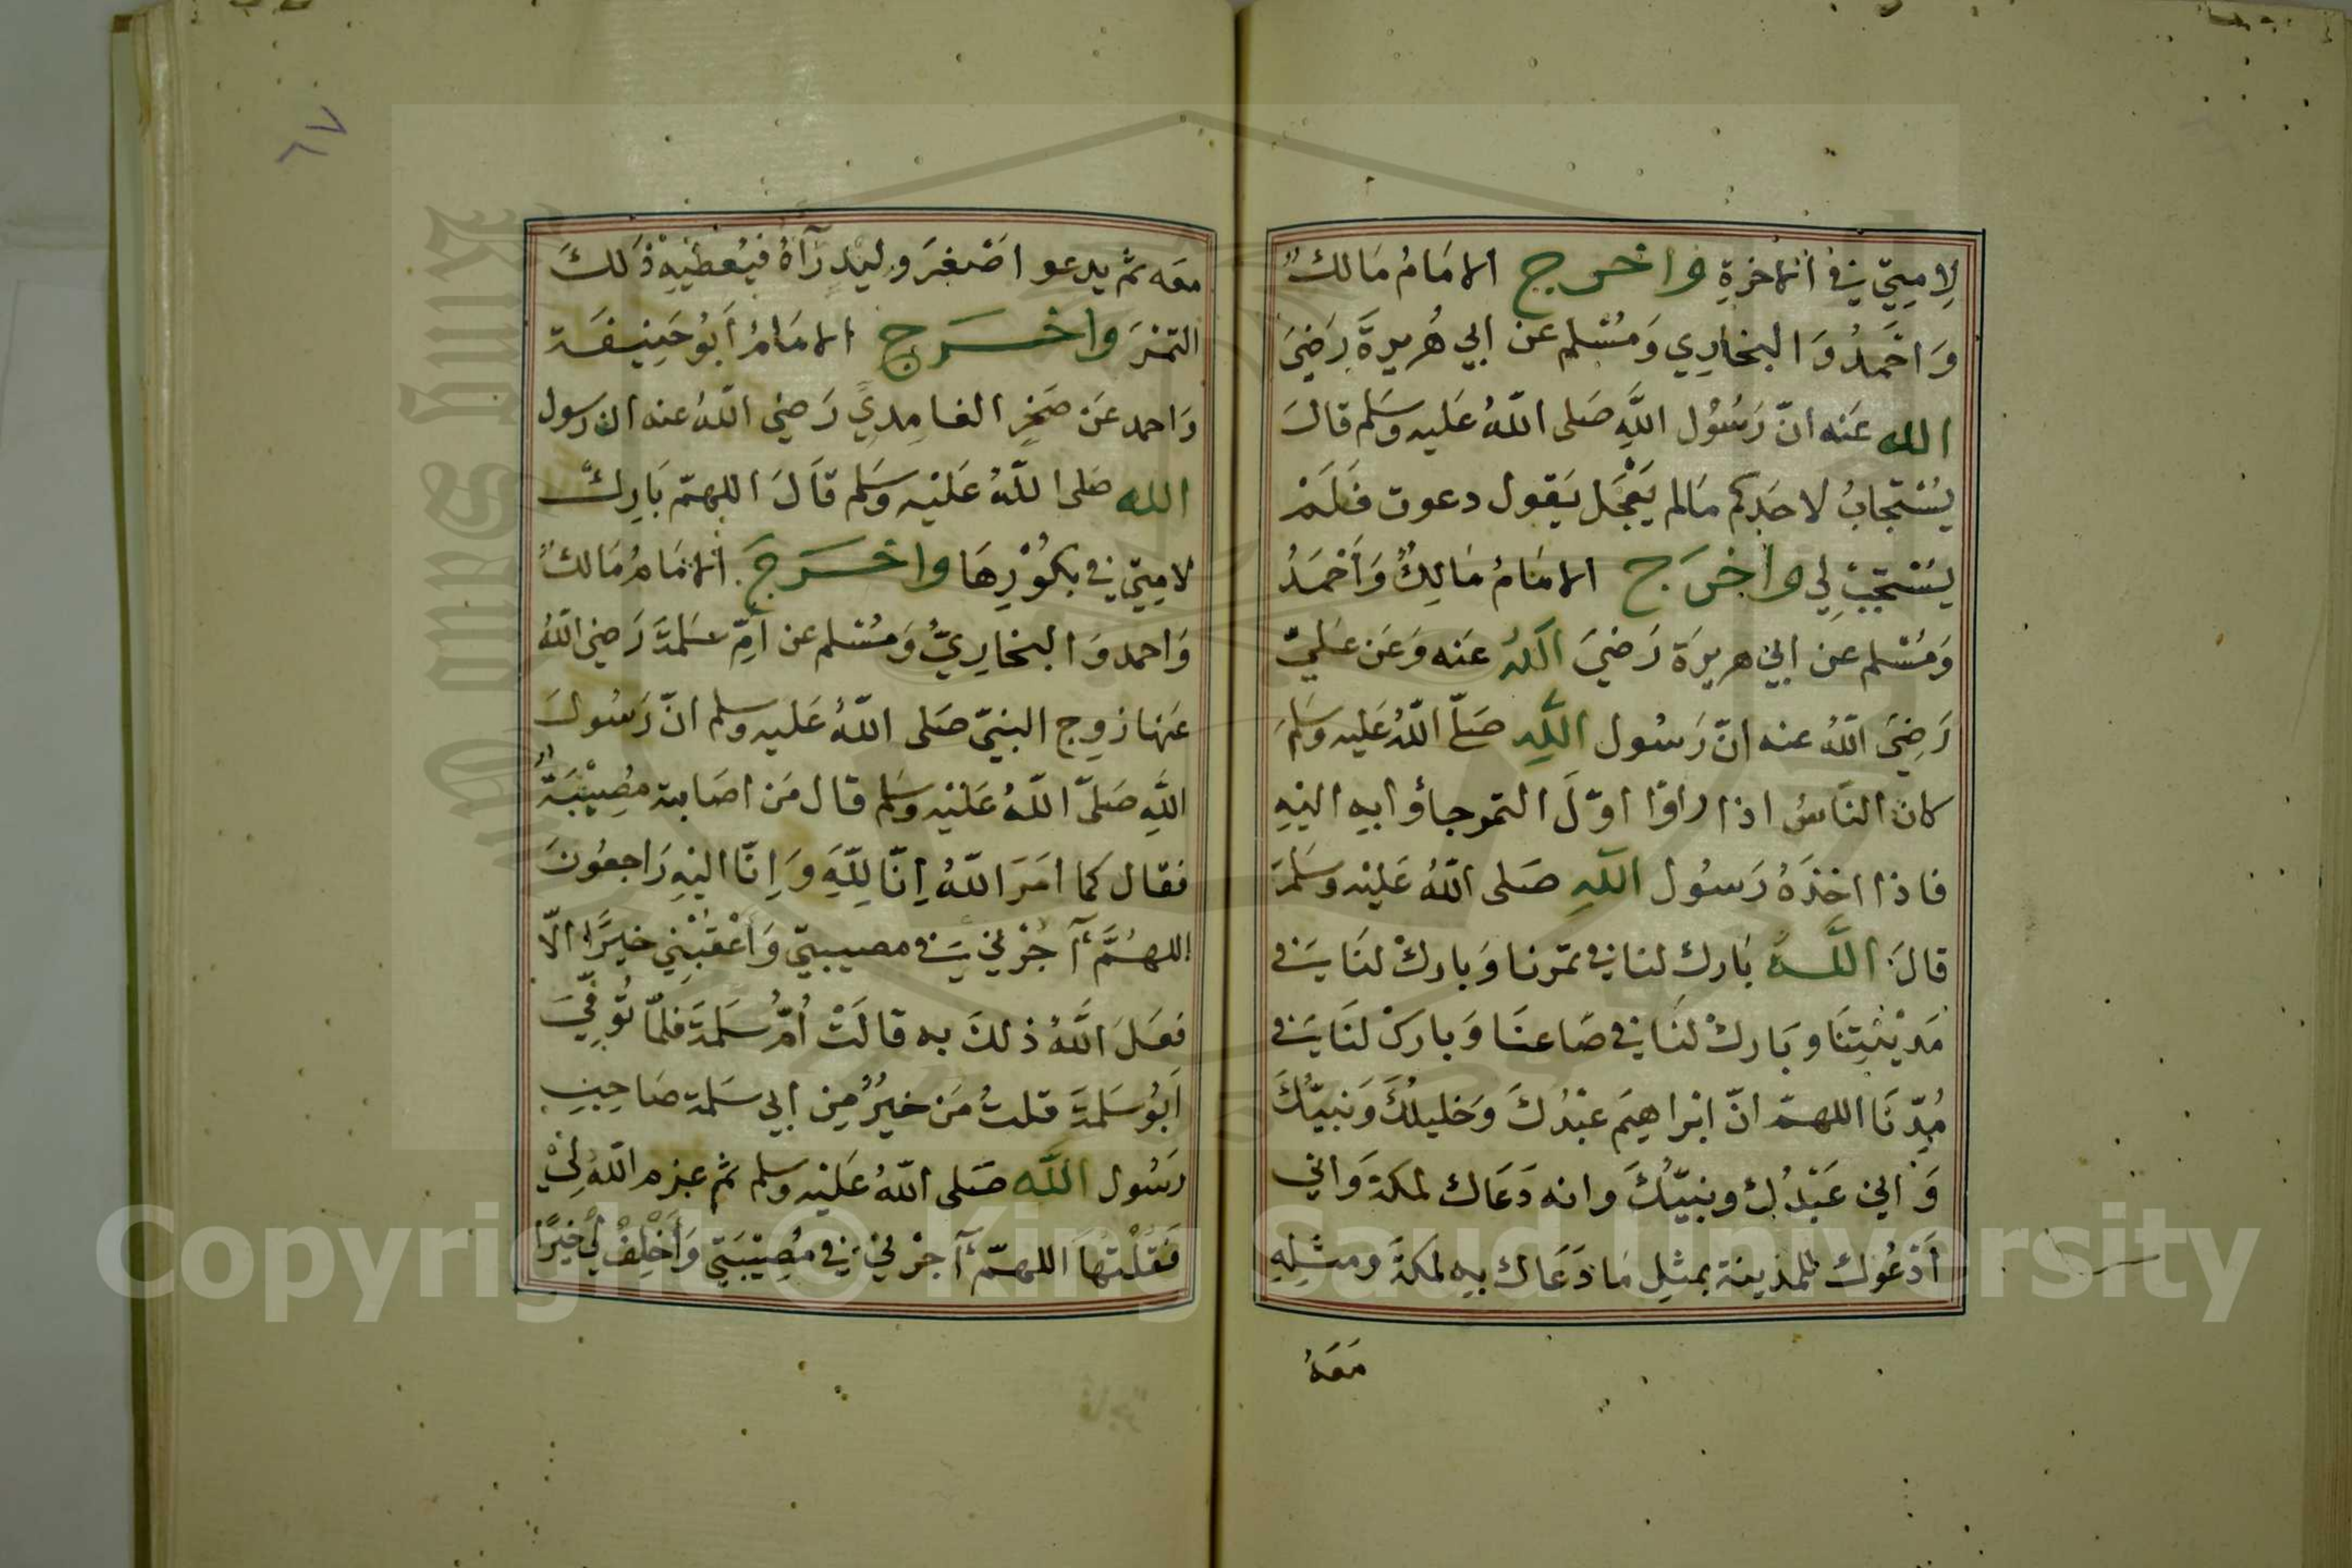 لِامِتِيّ فِي الاخرةِ واخرج الامَامُ مَالكٌ
وَاحَمدُ وَالبخارِي وَمُسْلم عَن ابي هُريرةَ رَضيَ
الله عَنه انّ رَسُول اللَّهِ صَلى اللّهُ عَليه وسَلم قالَ
يُسْتجَابُ لاحَدِكم مَالم يَعْجَل يَقول دعوت فَلَمْ
يسُتجَبْ لِي واخرَج الامَامُ مَالِكٌ وَأَحْمَدُ
وَمُسْلم عن ابي هريرَة رَضيَ اللّهُ عَنه وَعَن عَليّ
رَضِيَ اللّهُ عنه انّ رَسُول اللَّهِ صَلّى اللّهُ عَليه وسَلمَ
كان النَّاسُ اذا راوا اوّلَ التمر جاؤ ابهِ اليْهِ
فاذا اخذَهُ رَسُول اللَّهِ صَلى اللّهُ عَليْه وسَلمَ
قالَ اللَّهمَّ بَارك لنا في تمَرنا وَبَاركْ لنَا في
مَدْيْنَتِنَا وَبَاركْ لَنَا في صَاعنَا وَباركْ لنَا في
مُدِّنَا اللهمّ انّ ابْراهيمَ عبْدُكَ وَخليلُكَ وَنَبيّكَ
وَ اني عَبْدُك ونبيّكَ وانه دَعَاك لمكة وَاني
أدْعُوك للمدينة بمثلِ مَا دَعَاك بهِ لمكةَ ومثلِهِ
مَعَهُ
٦٧
معَه ثم يدعو اصْغرَ وليْدٍ رَآهُ فيُعطيْهِ ذٰلكَ
التمْرَ واخرَج الامَامُ أبُو حَنِيفَة
وَاحمد عَن صَخرِ الغامِديّ رَضي اللّهُ عنه ان رسول
الله صَلى اللّهُ عَليْه وسَلم قاَلَ اللهمّ بَارِكْ
لامِتيّ في بكُوْرِهَا واخرَجَ الامَامُ مَالكٌ
وَاحمد وَالبخارِيّ وَمُسْلم عن أمّ سَلمةَ رَضي اللّهُ
عَنها زوج النبيّ صَلى اللّهُ عَليه وسلم انّ رَسُولَ
اللَّهِ صَلىّ اللّهُ عَليْه وسَلم قال مَن اصَابته مُصِيْبَةٌ
فقال كما امَرَ اللّهُ إِنّا لِلّهِ وَإِنّا اليْهِ رَاجعُونَ
اللهُمَّ أْجُرْني في مصيبتي وَأعْقبْنِي خيرًا الاّ
فعَلَ اللَّهُ ذلكَ به قالَتْ أُمُّ سَلمَةَ فلمّا تُوفّيَ
أَبُو سَلمَةَ قلتُ مَن خيْرٌ مِن ابي سَلمة صَاحِبِ
رَسُول اللَّه صَلى اللّهُ عَليْه وسلم ثم عزم اللّهُ لِيْ
فَقلْتُهَا اللهمّ أْجرْني في مُصِيْبَتي وَأَخْلِفْ لي خيرًا
Copyright © King Saud University